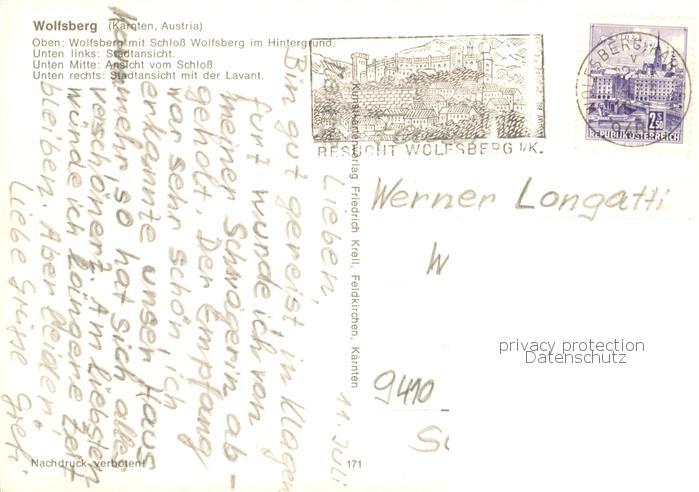 Wolfsberg (Kärnten, Austria)
Oben: Wolfsberg mit Schloß Wolfsberg im Hintergrund.
Unten links: Stadtansicht.
Unten Mitte: Ansicht vom Schloß
Unten rechts: Stadtansicht mit der Lavant.
BESUCHT WOLFSBERG I/K.
WOLFSBERG
REPUBLIK ÖSTERREICH
2.50
Kunstkartenverlag Friedrich Krell, Feldkirchen, Kärnten
11. Juli
Lieben,
Bin gut gereist, in Klagen
furt wurde ich von
meiner Schwägerin ab-
geholt. Der Empfang
war sehr schön ich
erkannte unser Haus
mehr, so hat sich alles
verschönert. Am liebsten
würde ich längere Zeit
bleiben. Aber leider,
Liebe Grüsse Greti
Werner Longatti
W
9410
privacy protection
Datenschutz
Nachdruck verboten!
171